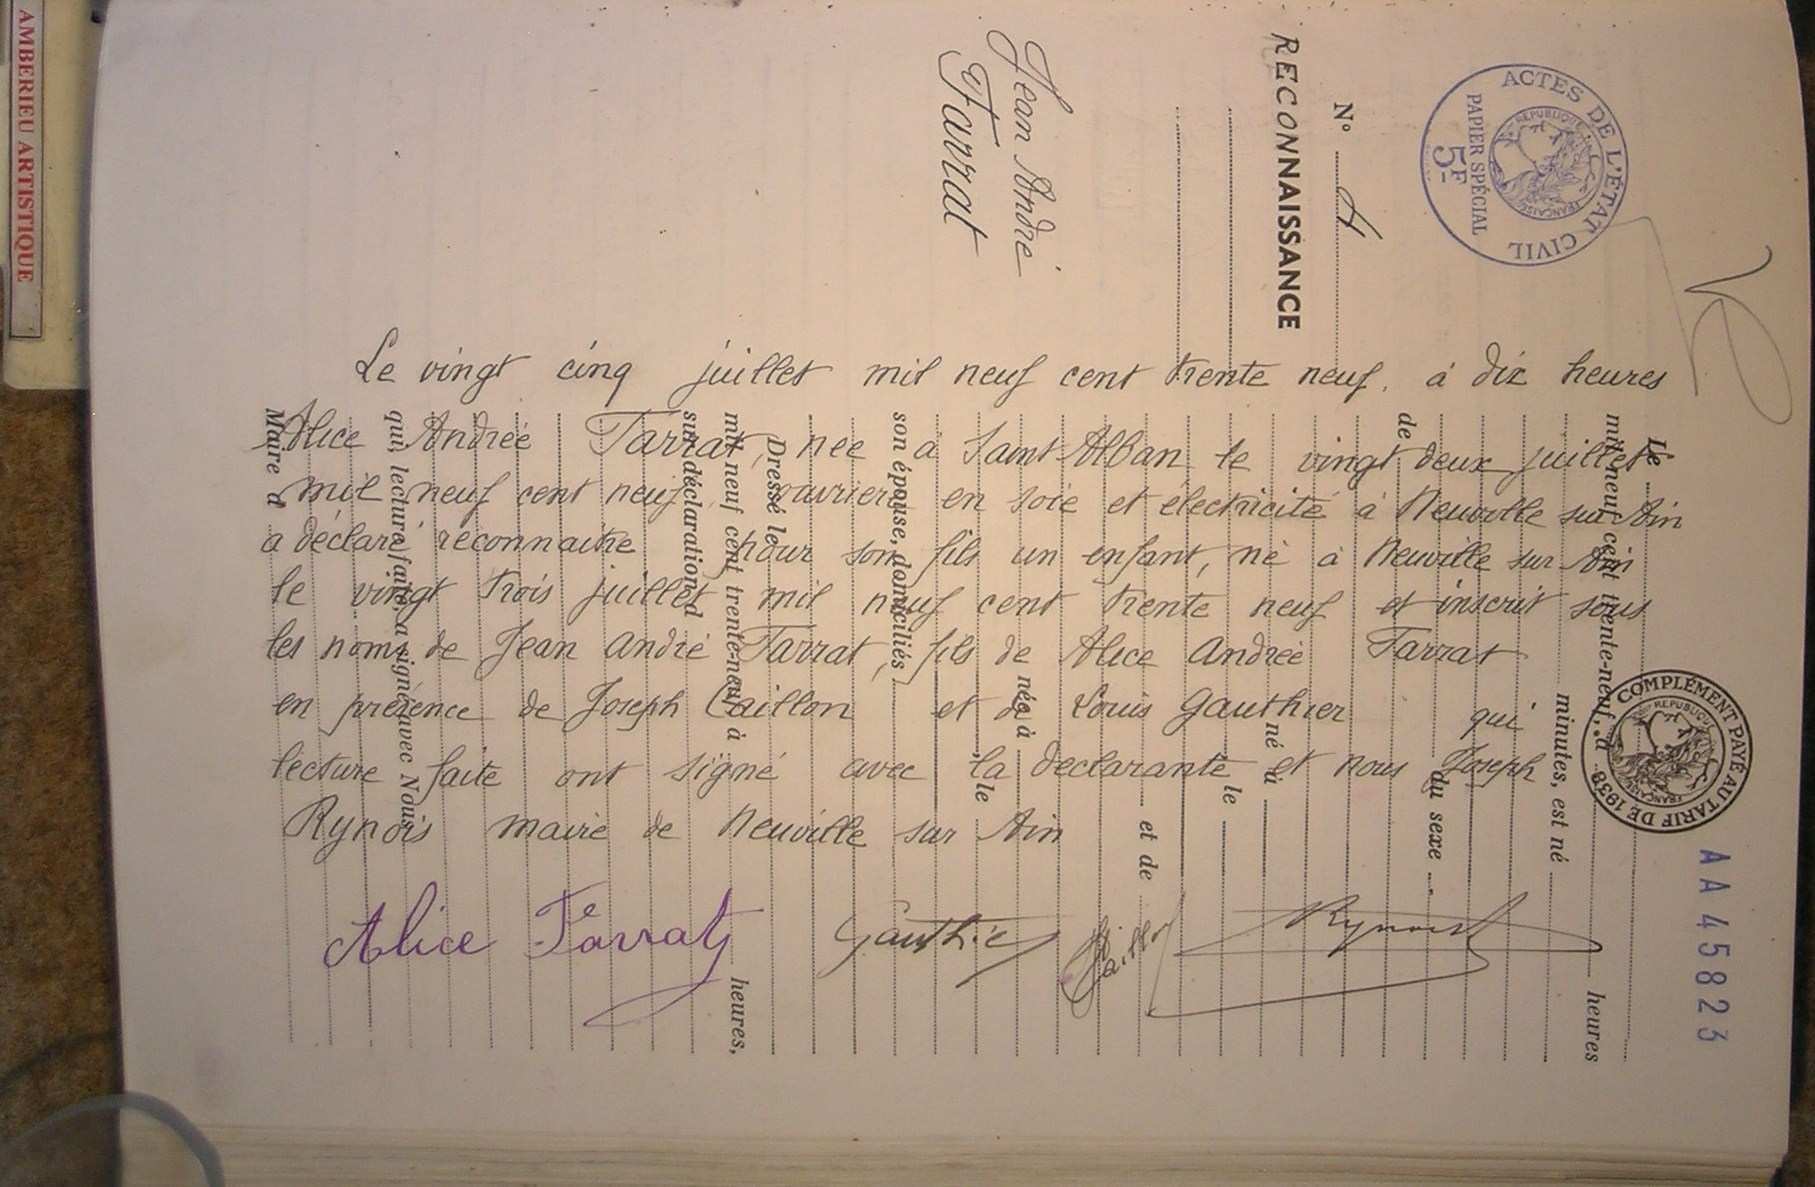 AMBERIEU ARTISTIQUE
ACTES DE L'ÉTAT CIVIL
RÉPUBLIQUE FRANÇAISE
PAPIER SPÉCIAL
5F
N° 4
RECONNAISSANCE
Jean André
Farrat
Le vingt cinq juillet mil neuf cent trente neuf. à dix heures
Alice Andrée Farrat, née à Saint Alban le vingt deux juillet
mil neuf cent neuf, ouvrière en soie et électricité à Neuville sur Ain
a déclaré reconnaitre pour son fils un enfant, né à Neuville sur Ain
le vingt trois juillet mil neuf cent trente neuf et inscrit sous
les noms de Jean André Farrat, fils de Alice Andrée Farrat
en présence de Joseph Caillon et de Louis Gauthier qui
lecture faite ont signé avec la declarante et nous Joseph
Rynois maire de Neuville sur Ain
Alice Farrat Gauthier Caillon Rynois
Le
mil neuf cent trente-neuf, à heures
minutes, est né
du sexe
de
né à
le
et de
née à
le
son épouse, domiciliés
Dressé le
mil neuf cent trente-neuf à heures,
sur déclaration d
qui, lecture faite, a signé avec Nous
Maire d
COMPLÉMENT PAYÉ AU TARIF DE 1938
RÉPUBLIQUE FRANÇAISE
AA45823